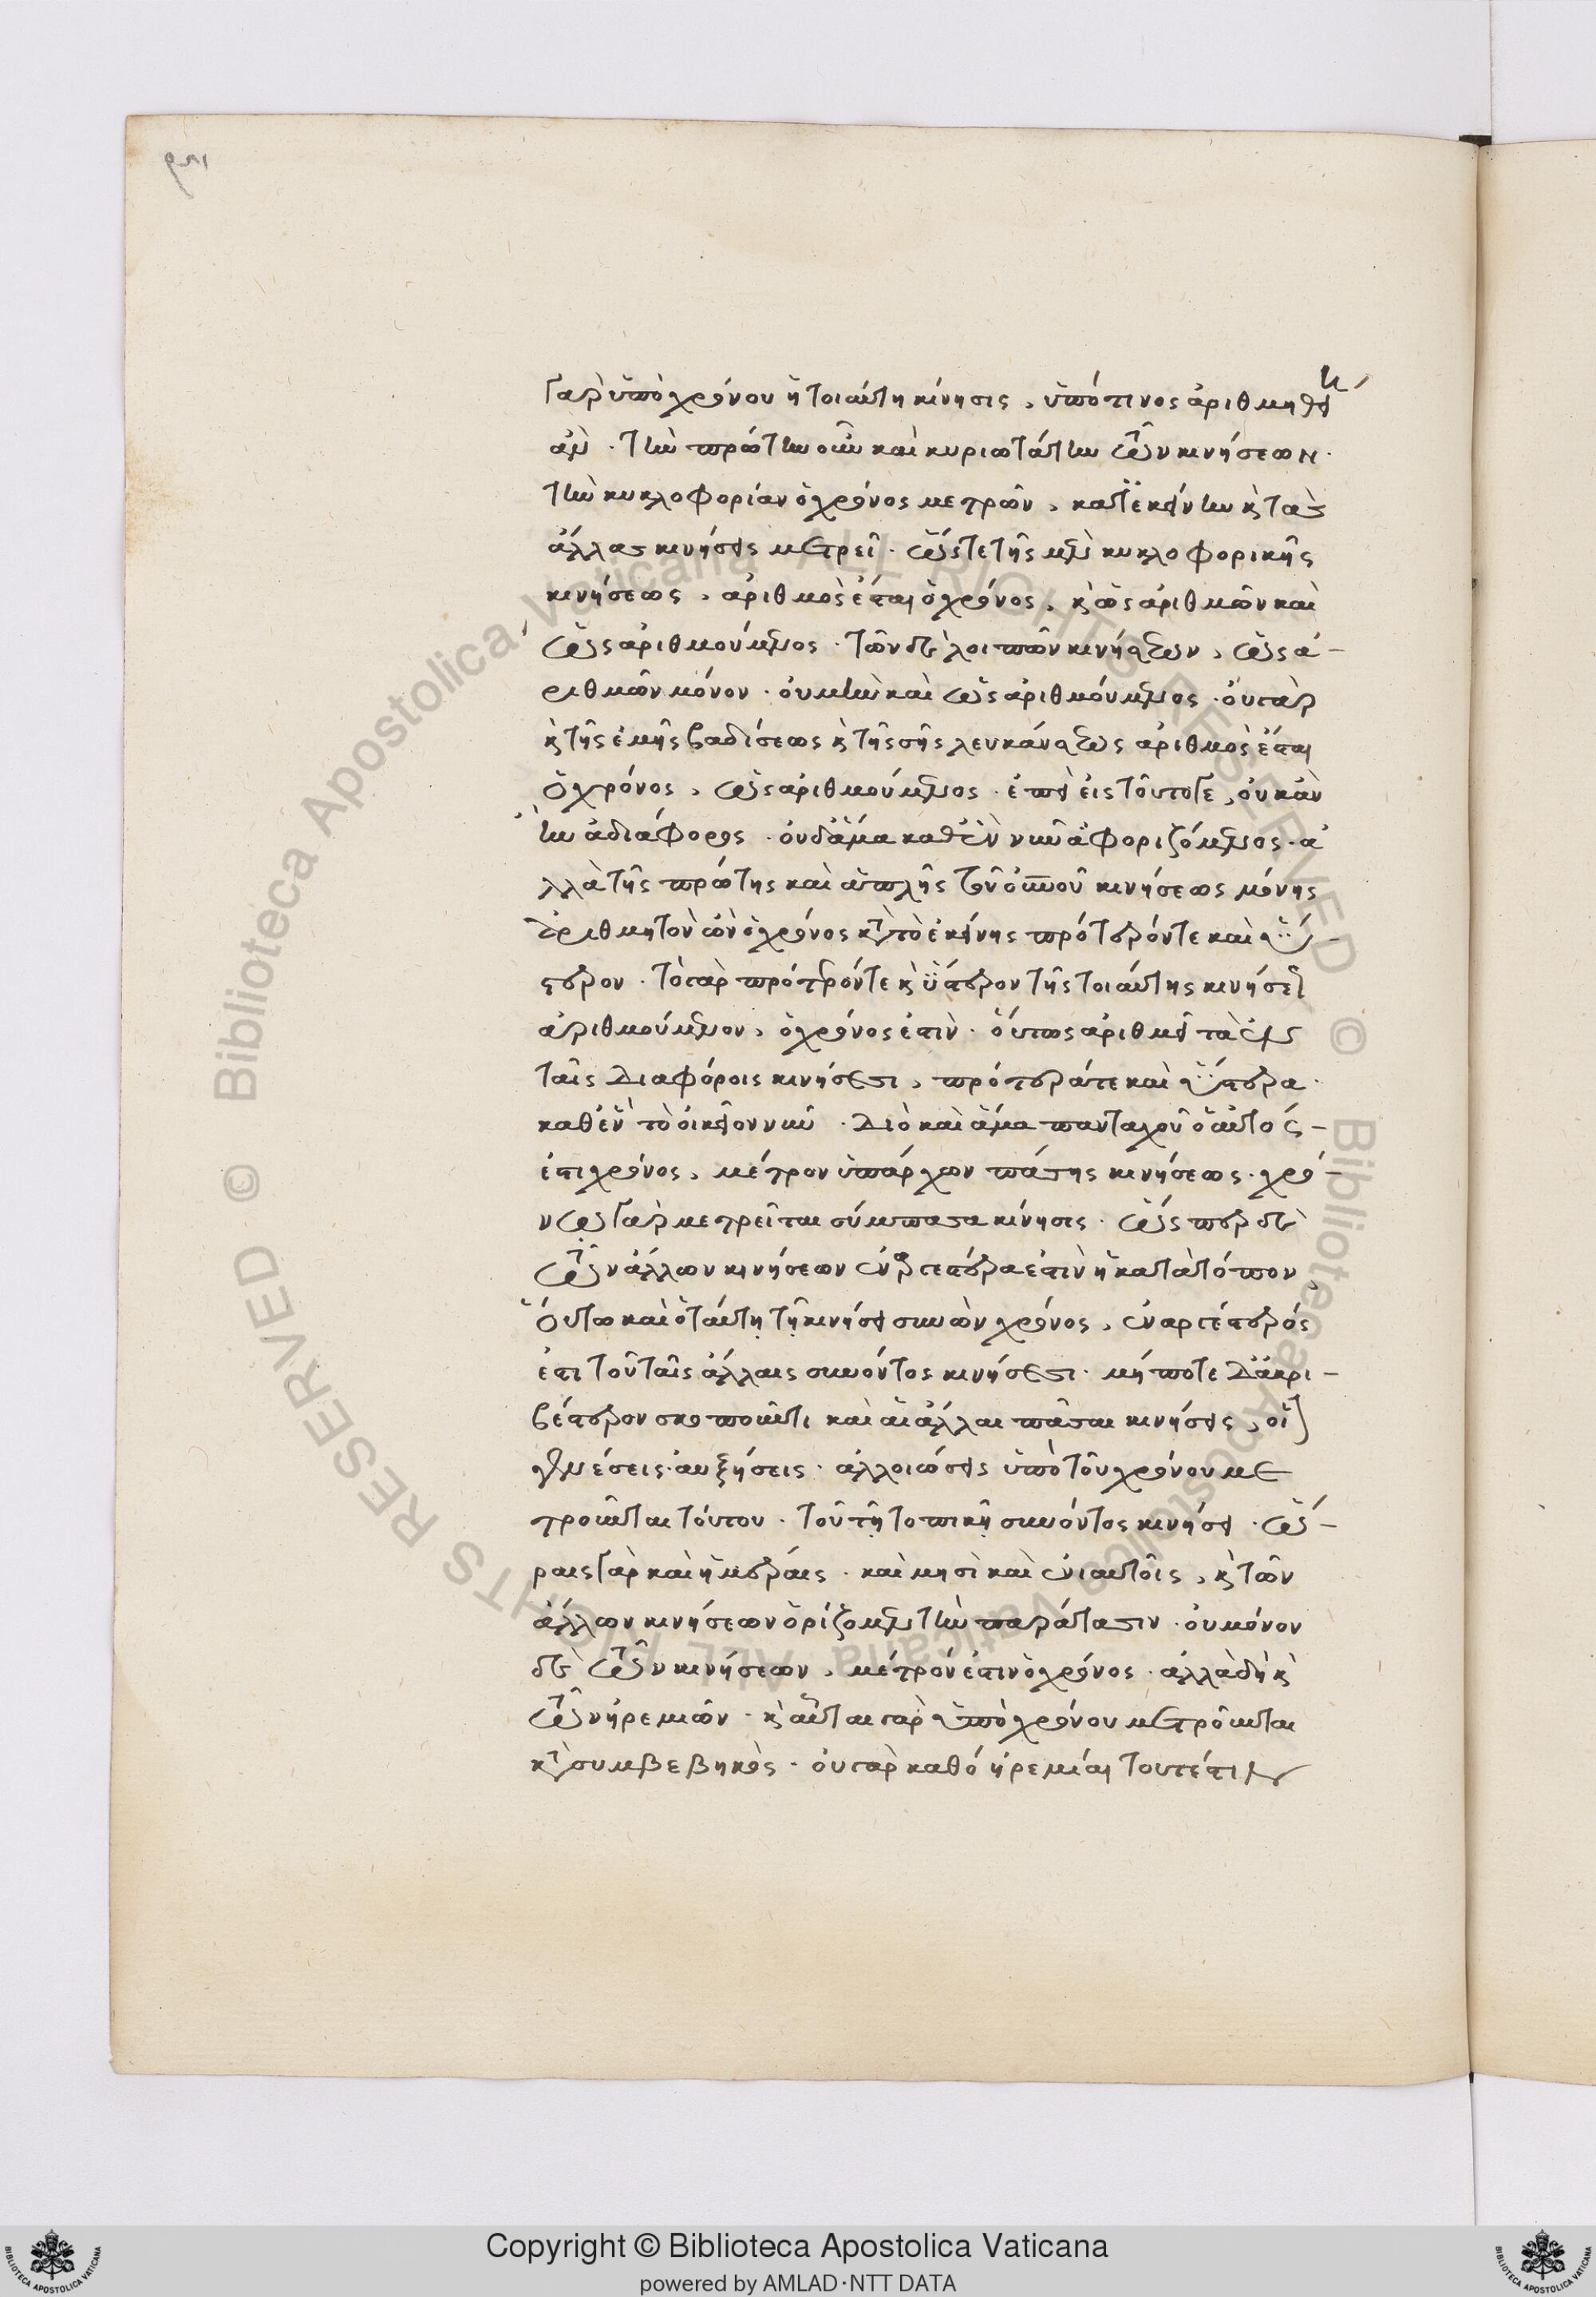 γὰρ ὑπὸ χρόνου ἡ τοιαύτη κίνησις, ὑπό τινος ἀριθμηθεί
αν. τὴν πρώτην οὖν καὶ κυριωτάτην τῶν κινήσεων.
τὴν κυκλοφορίαν ὁ χρόνος μετρῶν, κατ' ἐκείνην κ τὰς
ἄλλας κινήσεις μετρεῖ. ὥστε τῆς μὲν κυκλοφορικῆς
κινήσεως, ἀριθμὸς ἔσται ὁ χρόνος, κ ὡς ἀριθμῶν καὶ
ὡς ἀριθμούμενος. τῶν δὲ λοιπῶν κινήσεων, ὡς ἀ-
ριθμῶν μόνον. οὐ μὴν καὶ ὡς ἀριθμούμενος. οὐ γὰρ
κ τῆς ἐμῆς βαδίσεως κ τῆς σῆς λευκάνσεως ἀριθμὸς ἔσται
ὁ χρόνος, ὡς ἀριθμούμενος. ἐπεὶ εἰς τοῦτό γε, οὐκ ἂν
ἦν ἀδιάφορος. οὐδ' ἅμα καθ' ἓν νῦν ἀφοριζόμενος. ἀ
λλὰ τῆς πρώτης καὶ ἁπλῆς τοῦ οὐνοῦ κινήσεως μόνης
ἀριθμητὸν ὢν ὁ χρόνος κατὰ τὸ ἐκείνης πρότερόν τε καὶ ὕ-
στερον. τὸ γὰρ πρότερόν τε κ ὕστερον τῆς τοιαύτης κινήσεως
ἀριθμούμενον, ὁ χρόνος ἐστὶν. οὕτως ἀριθμεῖ τὰ ἐν
ταῖς διαφόροις κινήσεσι, πρότερά τε καὶ ὕστερα.
καθ' ἓν τὸ οἰκεῖον νῦν. διὸ καὶ ἅμα πανταχοῦ ὁ αὐτός-
ἐστι χρόνος, μέτρον ὑπάρχων πάσης κινήσεως. χρό-
νῳ γὰρ μετρεῖται σύμπασα κίνησις. ὥσπερ δὲ
τῶν ἄλλων κινήσεων ἐναργεστέρα ἐστὶν ἡ κατὰ τόπον,
οὕτω καὶ ὁ ταύτῃ τῇ κινήσει συνὼν χρόνος, ἐναργέστερός
ἐστι τοῦ ταῖς ἄλλαις συνόντος κινήσεσι. μήποτε δ' ἀκρι-
βέστερον σκοποῦντι καὶ αἱ ἄλλαι πᾶσαι κινήσεις, οἷον
γενέσεις. αὐξήσεις. ἀλλοιώσεις ὑπὸ τοῦ χρόνου με
τροῦνται τούτου. τοῦ τῇ τοπικῇ συνόντος κινήσει. ὥ-
ραις γὰρ καὶ ἡμέραις. καὶ μησὶ καὶ ἐνιαυτοῖς, κ τῶν
ἄλλων κινήσεων ὁρίζομεν τὴν παράτασιν. οὐ μόνον
δὲ τῶν κινήσεων, μέτρον ἐστιν ὁ χρόνος. ἀλλὰ δὴ κ
τῶν ἠρεμιῶν. κ αὗται γὰρ ὑπὸ χρόνου μετροῦνται
κατὰ συμβεβηκός. οὐ γὰρ καθό ἠρεμίαι τουτέστιν